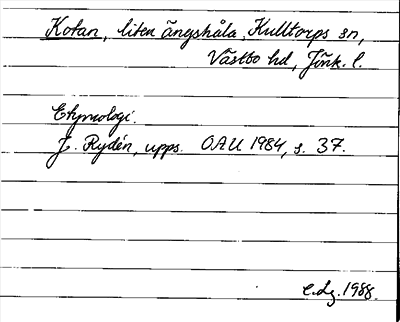 Kotan, liten ängshåla, Kulltorps sn,
Västbo hd, Jönk. l.
Etymologi.
J. Rydén, upps. OAU 1984, s. 37.
C.Lg. 1988.